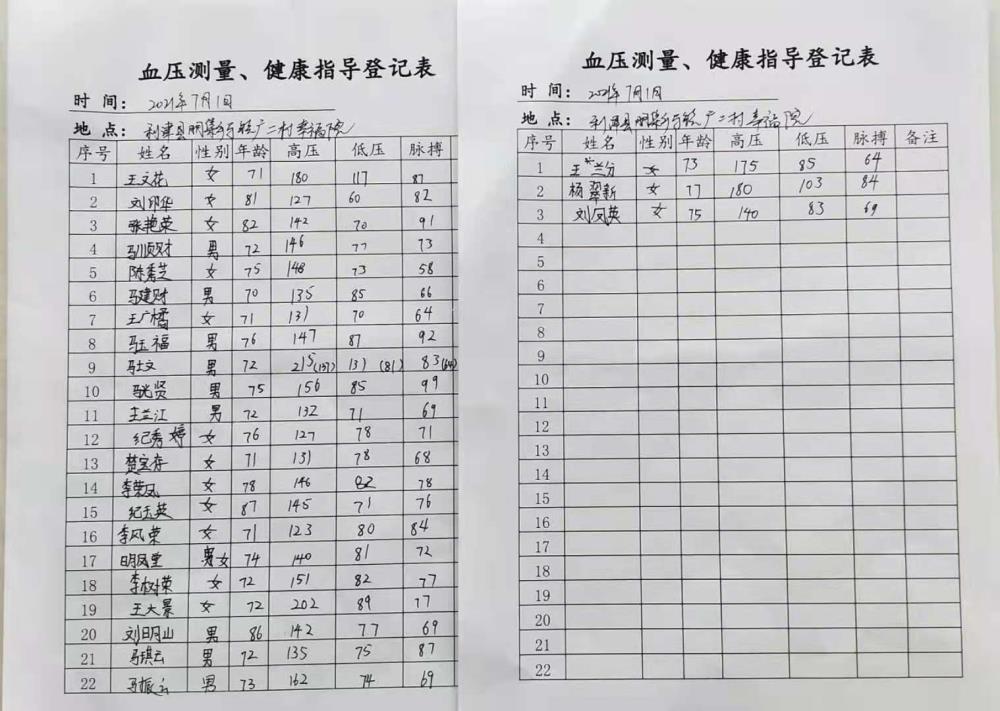 血压测量、健康指导登记表
时 间： 2021年7月1日
地 点： 利津县明集乡 广二村幸福院
序号 姓名 性别 年龄 高压 低压 脉搏
1 王文花 女 71 180 117 87
2 刘印华 女 81 127 60 82
3 张艳荣 女 82 142 70 91
4 马顺财 男 72 146 77 73
5 陈秀芝 女 75 148 73 58
6 马建财 男 70 135 85 66
7 王广橘 女 71 131 70 64
8 马玉福 男 76 147 87 92
9 男 72 215(137) 131 (81) 83(64)
10 马光贤 男 75 156 85 99
11 王兰江 男 72 132 71 69
12 纪秀婷 女 76 127 78 71
13 楚宝存 女 71 131 78 68
14 李荣凤 女 78 146 82 78
15 纪玉英 女 87 145 71 76
16 李风荣 女 71 123 80 84
17 明凤堂 女 74 140 81 72
18 李树荣 女 72 151 82 77
19 王大景 女 72 202 89 77
20 刘明山 男 86 142 77 69
21 马琪云 男 72 135 75 87
22 马振云 男 73 162 74 69
血压测量、健康指导登记表
时 间： 2021年7月1日
地 点： 利津县明集乡 广二村幸福院
序号 姓名 性别 年龄 高压 低压 脉搏 备注
1 王兰分 女 73 175 85 64
2 杨翠新 女 77 180 103 84
3 刘凤英 女 75 140 83 69
4
5
6
7
8
9
10
11
12
13
14
15
16
17
18
19
20
21
22